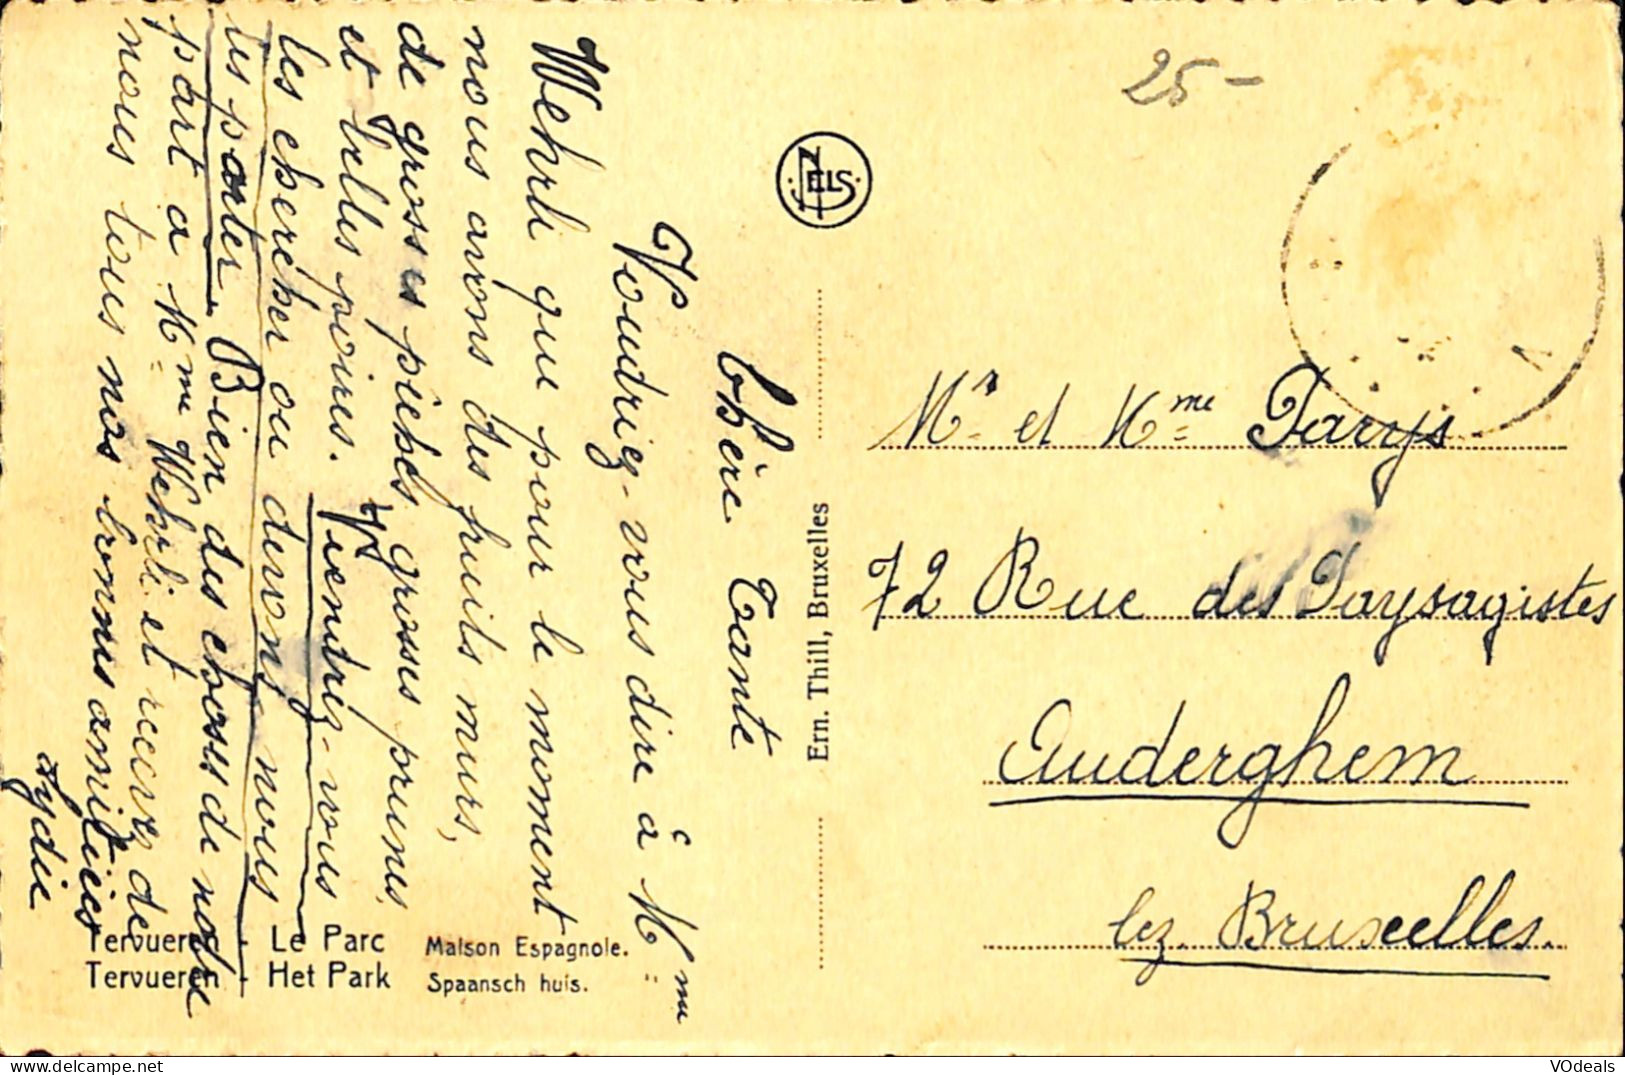 Chère Tante
Voudriez-vous dire à Mme
Wehrli que pour le moment
nous avons des fruits murs,
de grosses pèches grosses prunes,
et belles poires. Viendrez-vous
les chercher ou devons nous
les porter. Bien des choses de notre
part à Mme Wehrli et recevez de
nous tous nos bonnes amitiées
Lydie
25-
NELS
Ern. Thill, Bruxelles
Mr et Mme Parys
72 Rue des Paysagistes
Auderghem
lez. Bruxelles.
Tervueren - Le Parc Maison Espagnole.
Tervueren - Het Park Spaansch huis.
VOdeals